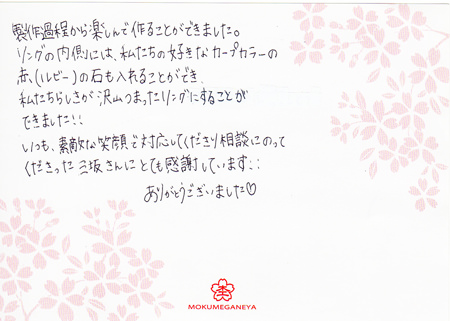 製作過程から楽しんで作ることができました。
リングの内側には、私たちの好きなカープカラーの
赤(ルビー)の石も入れることができ、
私たちらしさが沢山つまったリングにすることが
できました!!
いつも、素敵な笑顔で対応してくださり相談にのって
くださった 三坂さんにとても感謝しています::
ありがとうございました♡
MOKUMEGANEYA